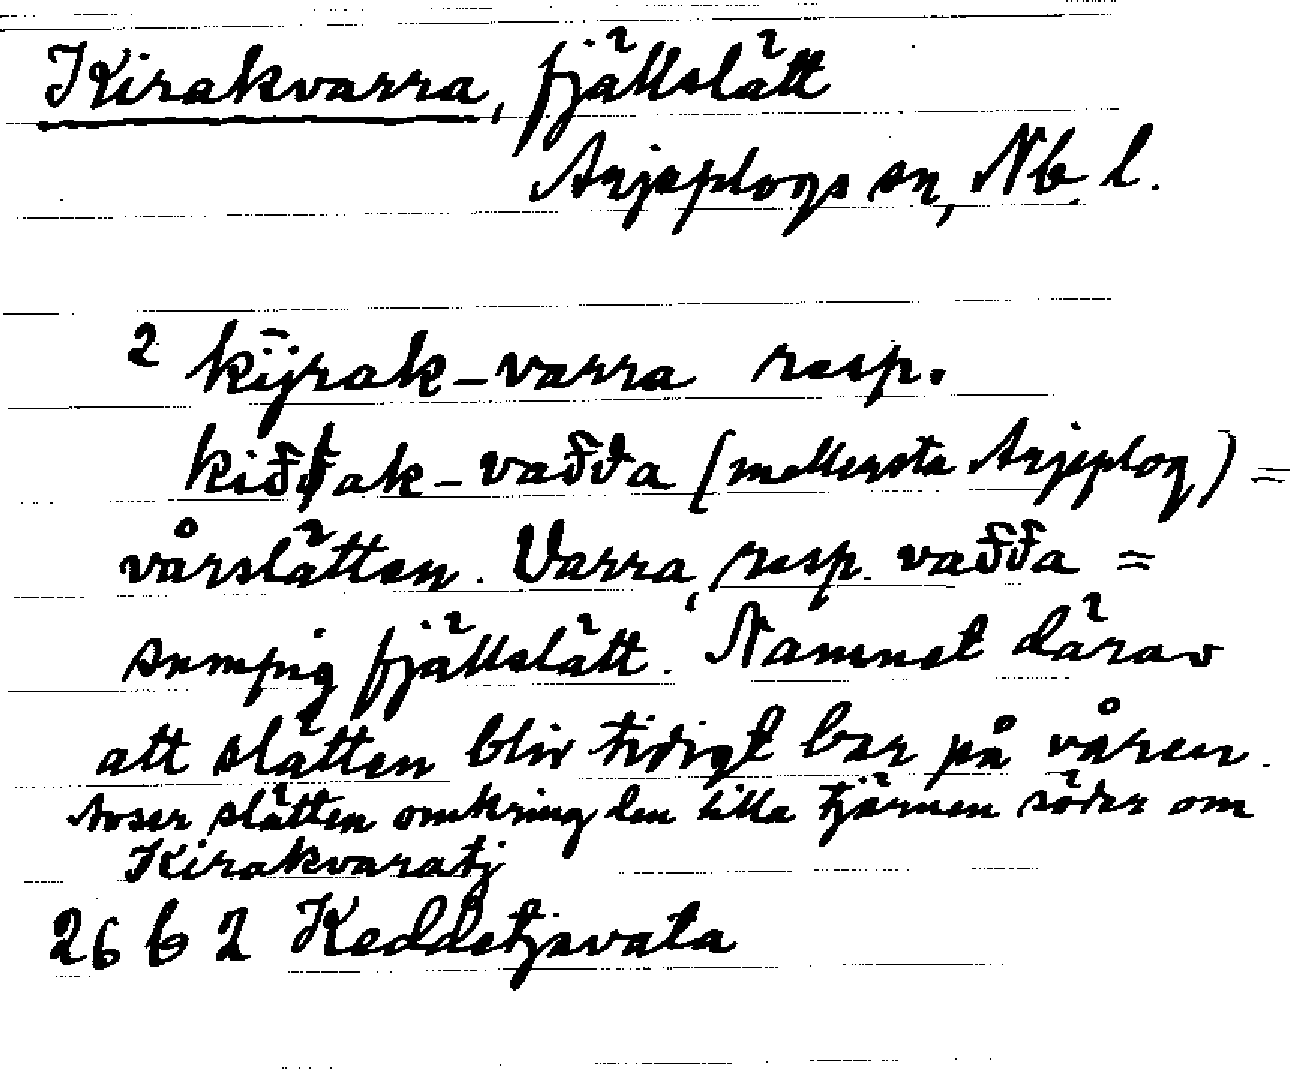 Kirakvarra, fjällslätt
Arjeplogs sn, Nb l.
2 kījrak-varra resp.
kiđđak-vađđa (mellersta Arjeplog) =
vårslätten. Varra, resp. vađđa =
sumpig fjällslätt. Namnet därav
att slätten blir tidigt bar på våren.
Avser slätten omkring den lilla tjärnen söder om
Kirakvaratj
26 b 2 Keddetjsvata